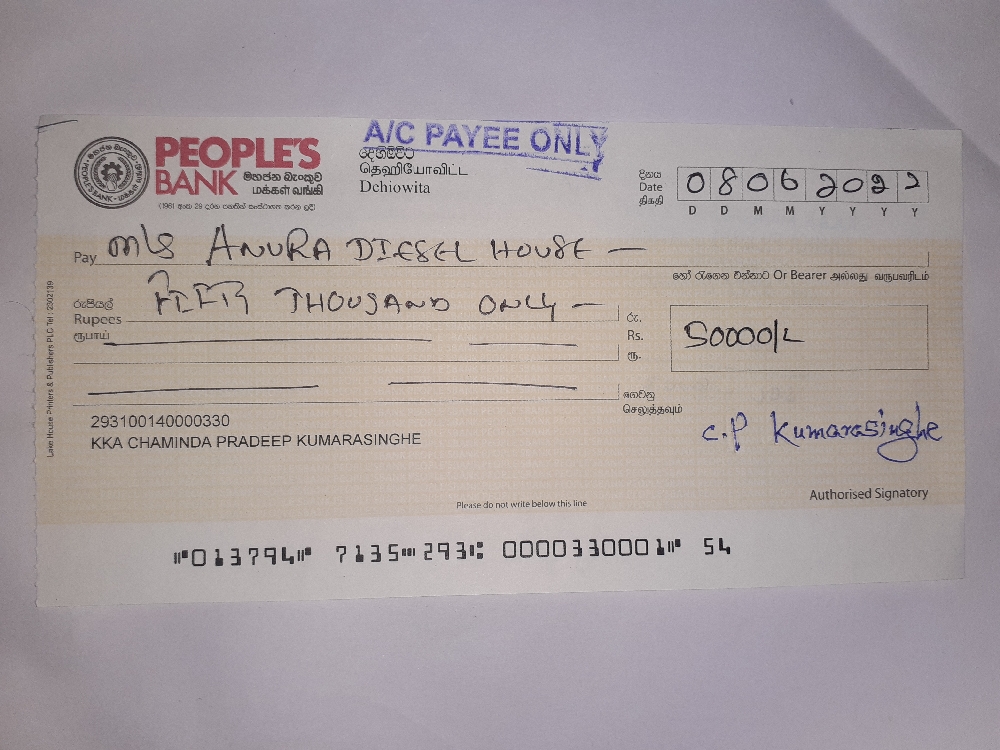 A/C PAYEE ONLY
PEOPLE'S
BANK මහජන බැංකුව
மக்கள் வங்கி
(1961 අංක 29 දරන පනතින් සංස්ථාගත කරන ලදී)
தெஹியோவிட்ட
Dehiowita
දිනය
Date
திகதி
08062022
D D M M Y Y Y Y
Pay M/S ANURA DIESEL HOUSE —
හෝ රැගෙන එන්නාට Or Bearer அல்லது வருபவரிடம்
රුපියල්
Rupees FIFTY THOUSAND ONLY —
ரூபாய்
රු.
Rs. 50000/-
ரூ.
ගෙවනු
செலுத்தவும்
293100140000330
KKA CHAMINDA PRADEEP KUMARASINGHE
C.P Kumarasinghe
Authorised Signatory
Please do not write below this line
Lake House Printers & Publishers PLC Tel : 2302139
⑈013794⑈ 7135⑉293⑆ 0000330001⑈ 54